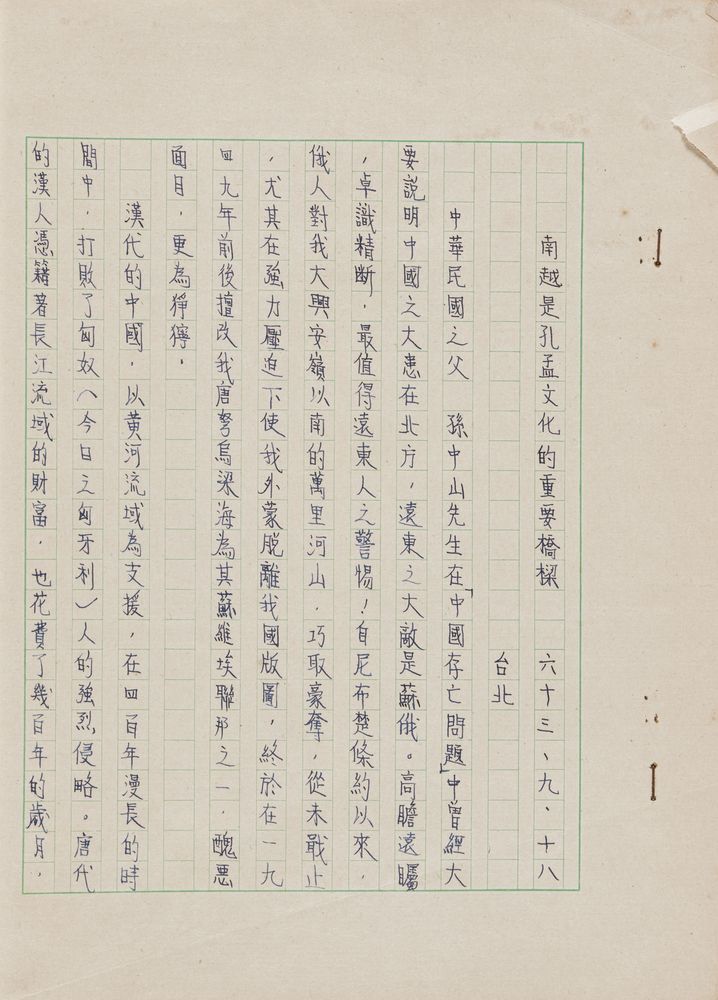 南越是孔孟文化的重要橋樑　六十三、九、十八
台北
中華民國之父　孫中山先生在「中國存亡問題」中曾經大
要說明中國之大患在北方，遠東之大敵是蘇俄。高瞻遠矚
，卓識精斷，最值得遠東人之警惕！自尼布楚條約以來，
俄人對我大興安嶺以南的萬里河山，巧取豪奪，從未戢止
，尤其在強力壓迫下使我外蒙脫離我國版圖，終於在一九
四九年前後擅改我唐努烏梁海為其蘇維埃聯邦之一，醜惡
面目，更為猙獰。
漢代的中國，以黃河流域為支援，在四百年漫長的時
間中，打敗了匈奴（今日之匈牙利）人的強烈侵略。唐代
的漢人憑藉著長江流域的財富，也花費了幾百年的歲月，